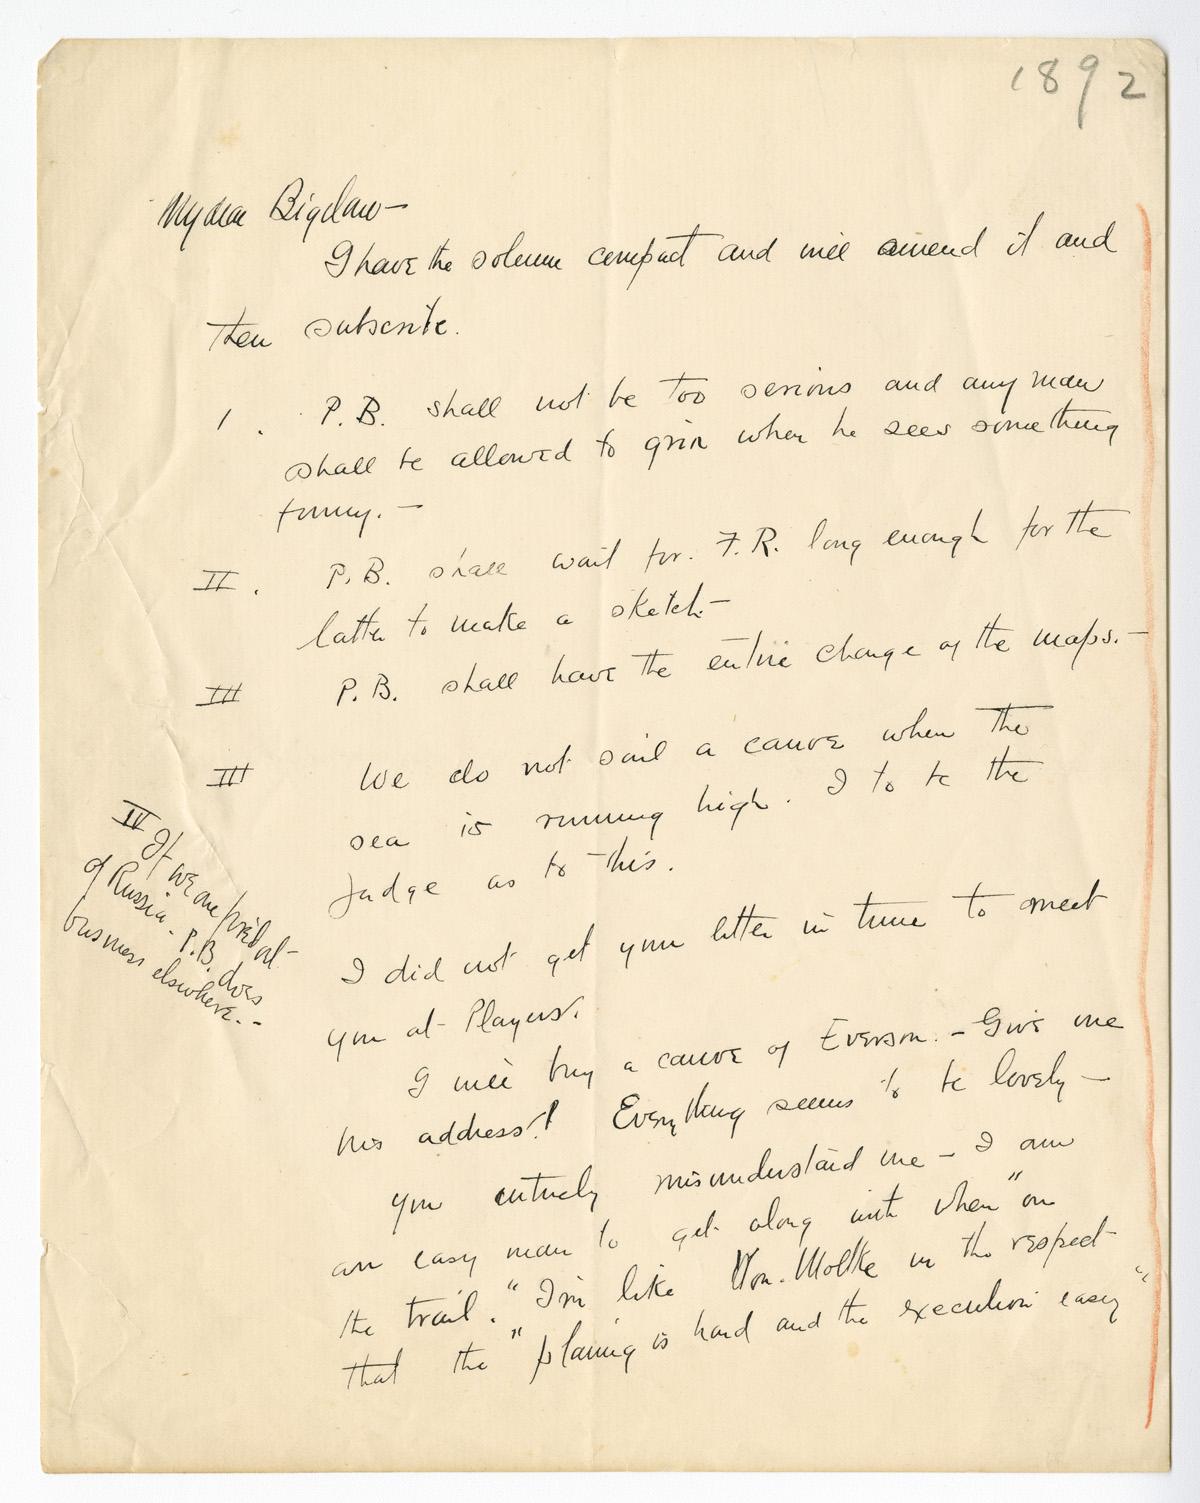 1892
My dear Bigelow —
I have the solemn compact and will amend it and
then subscribe.
1. P.B. shall not be too serious and any man
shall be allowed to grin when he sees something
funny. —
II. P.B. shall wait for F.R. long enough for the
latter to make a sketch —
III P.B. shall have the entire charge of the maps. —
III We do not sail a canoe when the
sea is running high. I to be the
judge as to this.
IV If we are fired out
of Russia. P.B. does
business elsewhere. —
I did not get your letter in time to meet
you at Players.
I will buy a canoe of Everson. — Give me
his address! Everything seems to be lovely —
You entirely misunderstand me — I am
an easy man to get along with when "on
the trail." I'm like Von. Moltke in the respect
that the "planing is hard and the execution easy"